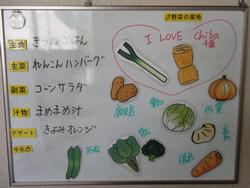 野菜の産地
I LOVE Chiba
主食 きつねごはん
主菜 れんこんハンバーグ
副菜 コーンサラダ
汁物 まめまめ汁
デザート きよみオレンジ
牛乳
愛知
佐賀
茨城